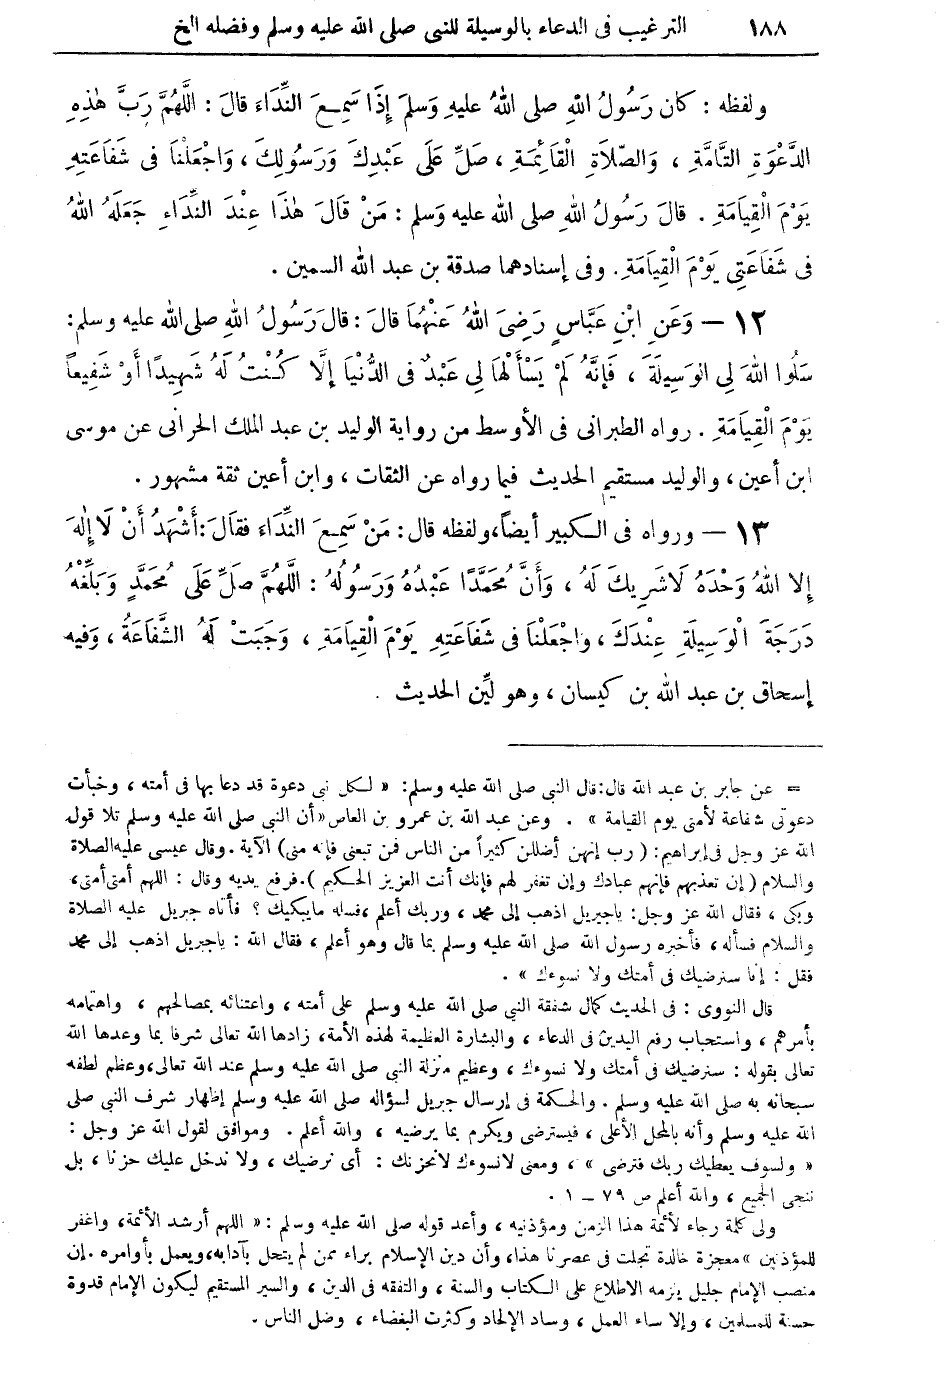 ١٨٨ الترغيب فى الدعاء بالوسيلة للنبي صلى الله عليه وسلم وفضله الخ
ولفظه : كان رَسُولُ اللهِ صلى اللهُ عليهِ وَسلمَ إِذَا سَمِعَ النِّدَاءَ قالَ : اللَّهُمَّ رَبَّ هٰذِهِ
الدَّعْوَةِ التَّامَّةِ ، وَالصَّلَاةِ الْقَائِمَةِ ، صَلِّ عَلَى عَبْدِكَ وَرَسُولِكَ ، وَاجْعَلْنَا فى شَفَاعَتِهِ
يَوْمَ الْقِيَامَةِ . قالَ رَسُولُ اللهِ صلى الله عليه وَسلم : مَنْ قَالَ هٰذَا عِنْدَ النِّدَاءِ جَعَلَهُ اللهُ
فى شَفَاعَتِى يَوْمَ الْقِيَامَةِ . وفى إسنادهما صدقة بن عبد الله السمين .
١٢ – وَعَنِ ابْنِ عَبَّاسٍ رَضِىَ اللهُ عَنْهُمَا قالَ : قالَ رَسُولُ اللهِ صلى الله عليه وسلم :
سَلُوا اللهَ لِى الْوَسِيلَةَ ، فَإِنَّهُ لَمْ يَسْأَلْهَا لِى عَبْدٌ فى الدُّنْيَا إِلَّا كُنْتُ لَهُ شَهِيدًا أَوْ شَفِيعاً
يَوْمَ الْقِيَامَةِ . رواه الطبرانى فى الأوسط من رواية الوليد بن عبد الملك الحرانى عن موسى
ابن أعين ، والوليد مستقيم الحديث فيما رواه عن الثقات ، وابن أعين ثقة مشهور .
١٣ – ورواه فى الكبير أيضاً، ولفظه قال : مَنْ سَمِعَ النِّدَاءَ فقَالَ : أَشْهَدُ أَنْ لَا إِلٰهَ
إِلا اللهُ وَحْدَهُ لَا شَرِيكَ لَهُ ، وَأَنَّ مُحَمَّدًا عَبْدُهُ وَرَسُولُهُ : اللَّهُمَّ صَلِّ عَلَى مُحَمَّدٍ وَبَلِّغْهُ
دَرَجَةَ الْوَسِيلَةِ عِنْدَكَ ، وَاجْعَلْنَا فى شَفَاعَتِهِ يَوْمَ الْقِيَامَةِ ، وَجَبَتْ لَهُ الشَّفَاعَةُ ، وَفيه
إسحاق بن عبد الله بن كيسان ، وهو ليِّن الحديث .
= عن جابر بن عبد الله قال : قال النبي صلى الله عليه وسلم : « لكل نبي دعوة قد دعا بها فى أمته ، وخبأت
دعوتى شفاعة لأمتى يوم القيامة » . وعن عبد الله بن عمرو بن العاص « أن النبي صلى الله عليه وسلم تلا قول
الله عز وجل فى إبراهيم : ( رب إنهن أضللن كثيراً من الناس فمن تبعنى فإنه منى ) الآية . وقال عيسى عليه الصلاة
والسلام ( إن تعذبهم فإنهم عبادك وإن تغفر لهم فإنك أنت العزيز الحكيم ) . فرفع يديه وقال : اللهم أمتى أمتى ،
وبكى ، فقال الله عز وجل : ياجبريل اذهب إلى محمد ، وربك أعلم ، فسله مايبكيك ؟ فأتاه جبريل عليه الصلاة
والسلام فسأله ، فأخبره رسول الله صلى الله عليه وسلم بما قال وهو أعلم ، فقال الله : ياجبريل اذهب إلى محمد
فقل : إنا سنرضيك فى أمتك ولا نسوءك » .
قال النووى : فى الحديث كمال شفقة النبي صلى الله عليه وسلم على أمته ، واعتنائه بمصالحهم ، واهتمامه
بأمرهم ، واستحباب رفع اليدين فى الدعاء ، والبشارة العظيمة لهذه الأمة ، زادها الله تعالى شرفا بما وعدها الله
تعالى بقوله : سنرضيك فى أمتك ولا نسوءك ، وعظيم منزلة النبي صلى الله عليه وسلم عند الله تعالى، وعظم لطفه
سبحانه به صلى الله عليه وسلم . والحكمة فى إرسال جبريل لسؤاله صلى الله عليه وسلم إظهار شرف النبي صلى
الله عليه وسلم وأنه بالمحل الأعلى ، فيسترضى ويكرم بما يرضيه ، والله أعلم . وموافق لقول الله عز وجل :
« ولسوف يعطيك ربك فترضى » ، ومعنى لانسوءك لانحزنك : أى نرضيك ، ولا ندخل عليك حزنا ، بل
ننجى الجميع ، والله أعلم ص ٧٩ – ١ .
ولى كلمة رجاء لأئمة هذا الزمن ومؤذنيه ، وأعد قوله صلى الله عليه وسلم : « اللهم أرشد الأئمة، واغفر
للمؤذنين » معجزة خالدة تجلت فى عصرنا هذا، وأن دين الإسلام براء ممن لم يتحل بآدابه، ويعمل بأوامره . إن
منصب الإمام جليل يلزمه الاطلاع على الكتاب والسنة ، والتفقه فى الدين ، والسير المستقيم ليكون الإمام قدوة
حسنة للمسلمين ، وإلا ساء العمل ، وساد الإلحاد وكثرت البغضاء ، وضل الناس .